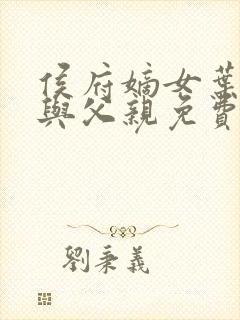 侯府嫡女葉
與父親免費
劉秉義